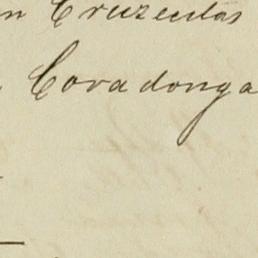 n Cruzedas
Covadonga